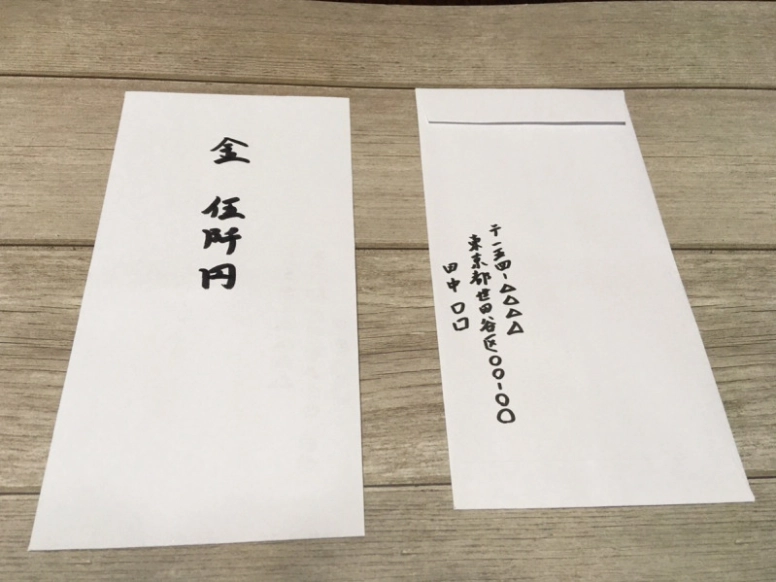 金 伍阡円
〒一五四-△△△△
東京都世田谷区〇〇-〇〇
田中 口口